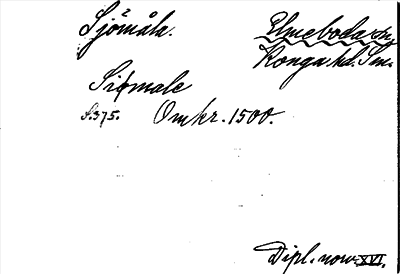 Sjömåla. Elmeboda sn,
Konga hd. Sm.
Siømale
s. 375. Omkr. 1500.
Dipl. norv. XVI.